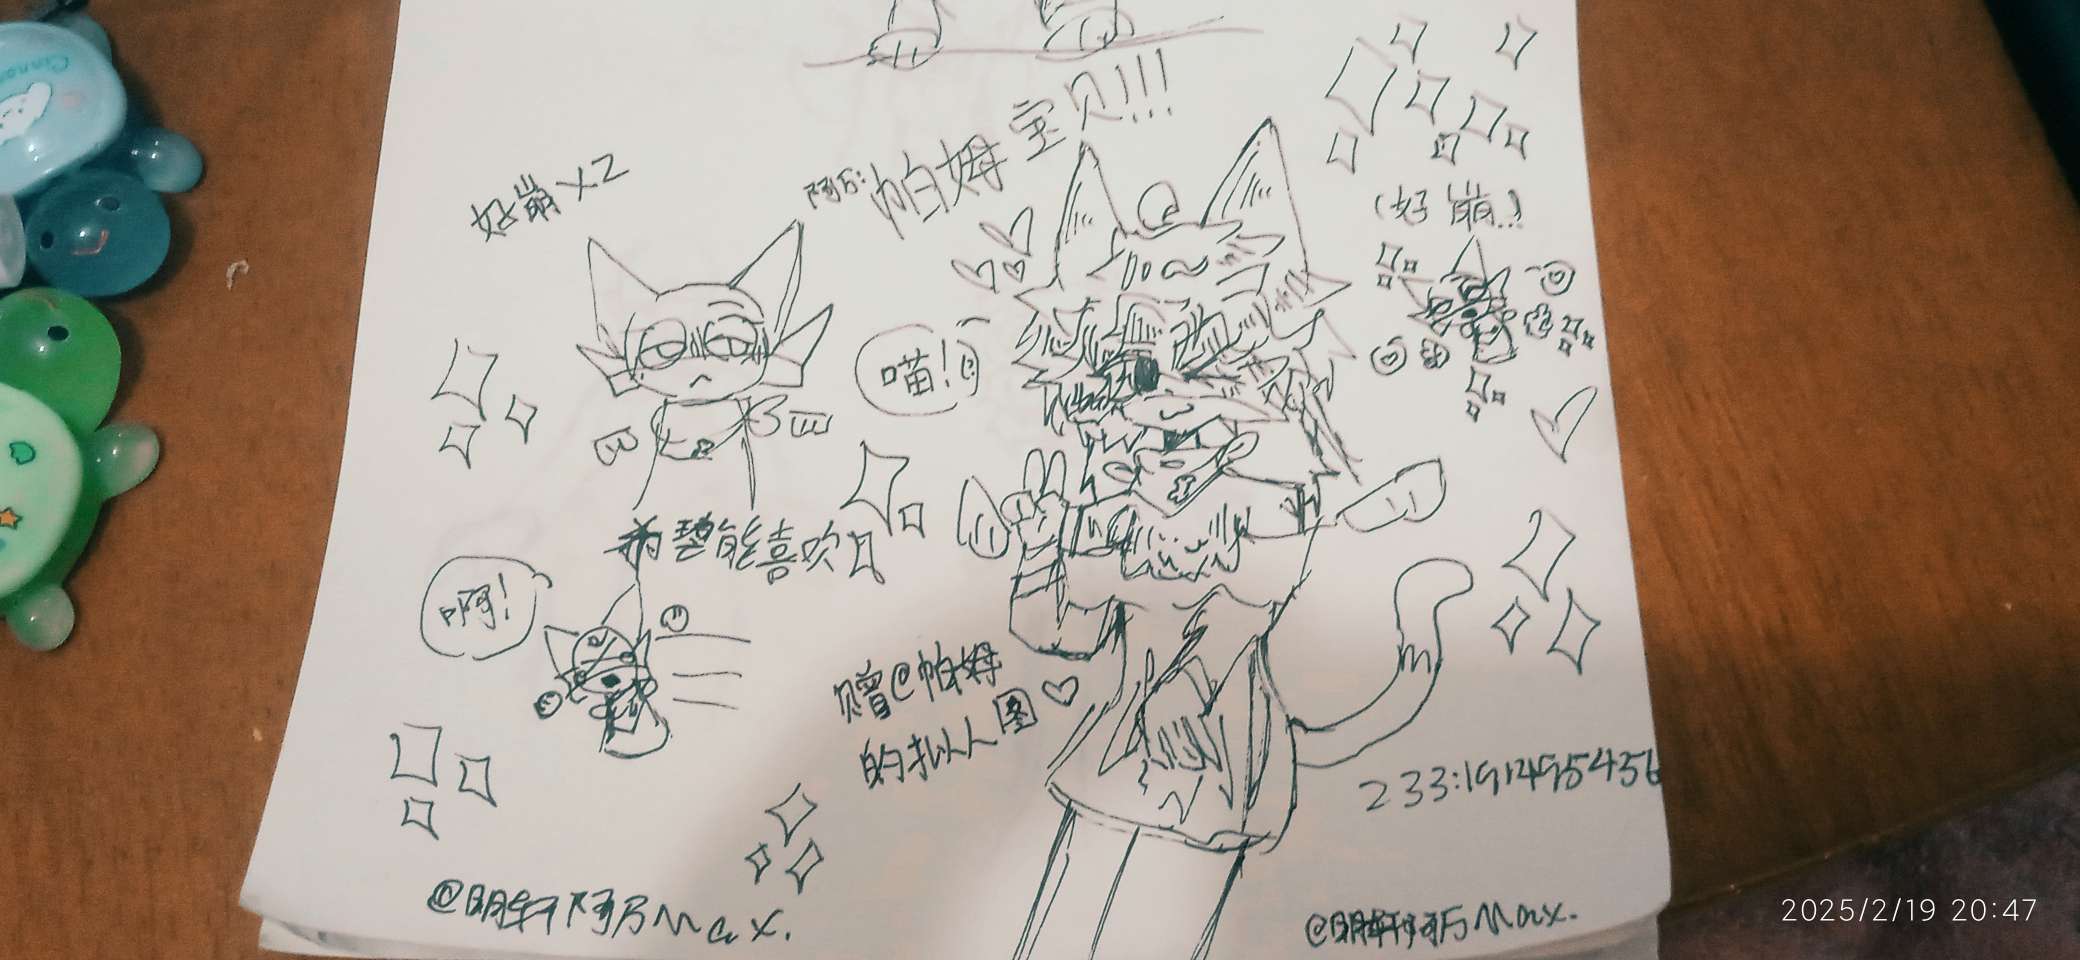 Cinnamo
阿万:帕姆宝贝!!!
好崩×2
(好崩!)
喵!
希望能喜欢
啊!
赠@帕姆
的拟人图
233:191495456
@明轩阿万Max.
@明轩阿万Max.
2025/2/19 20:47